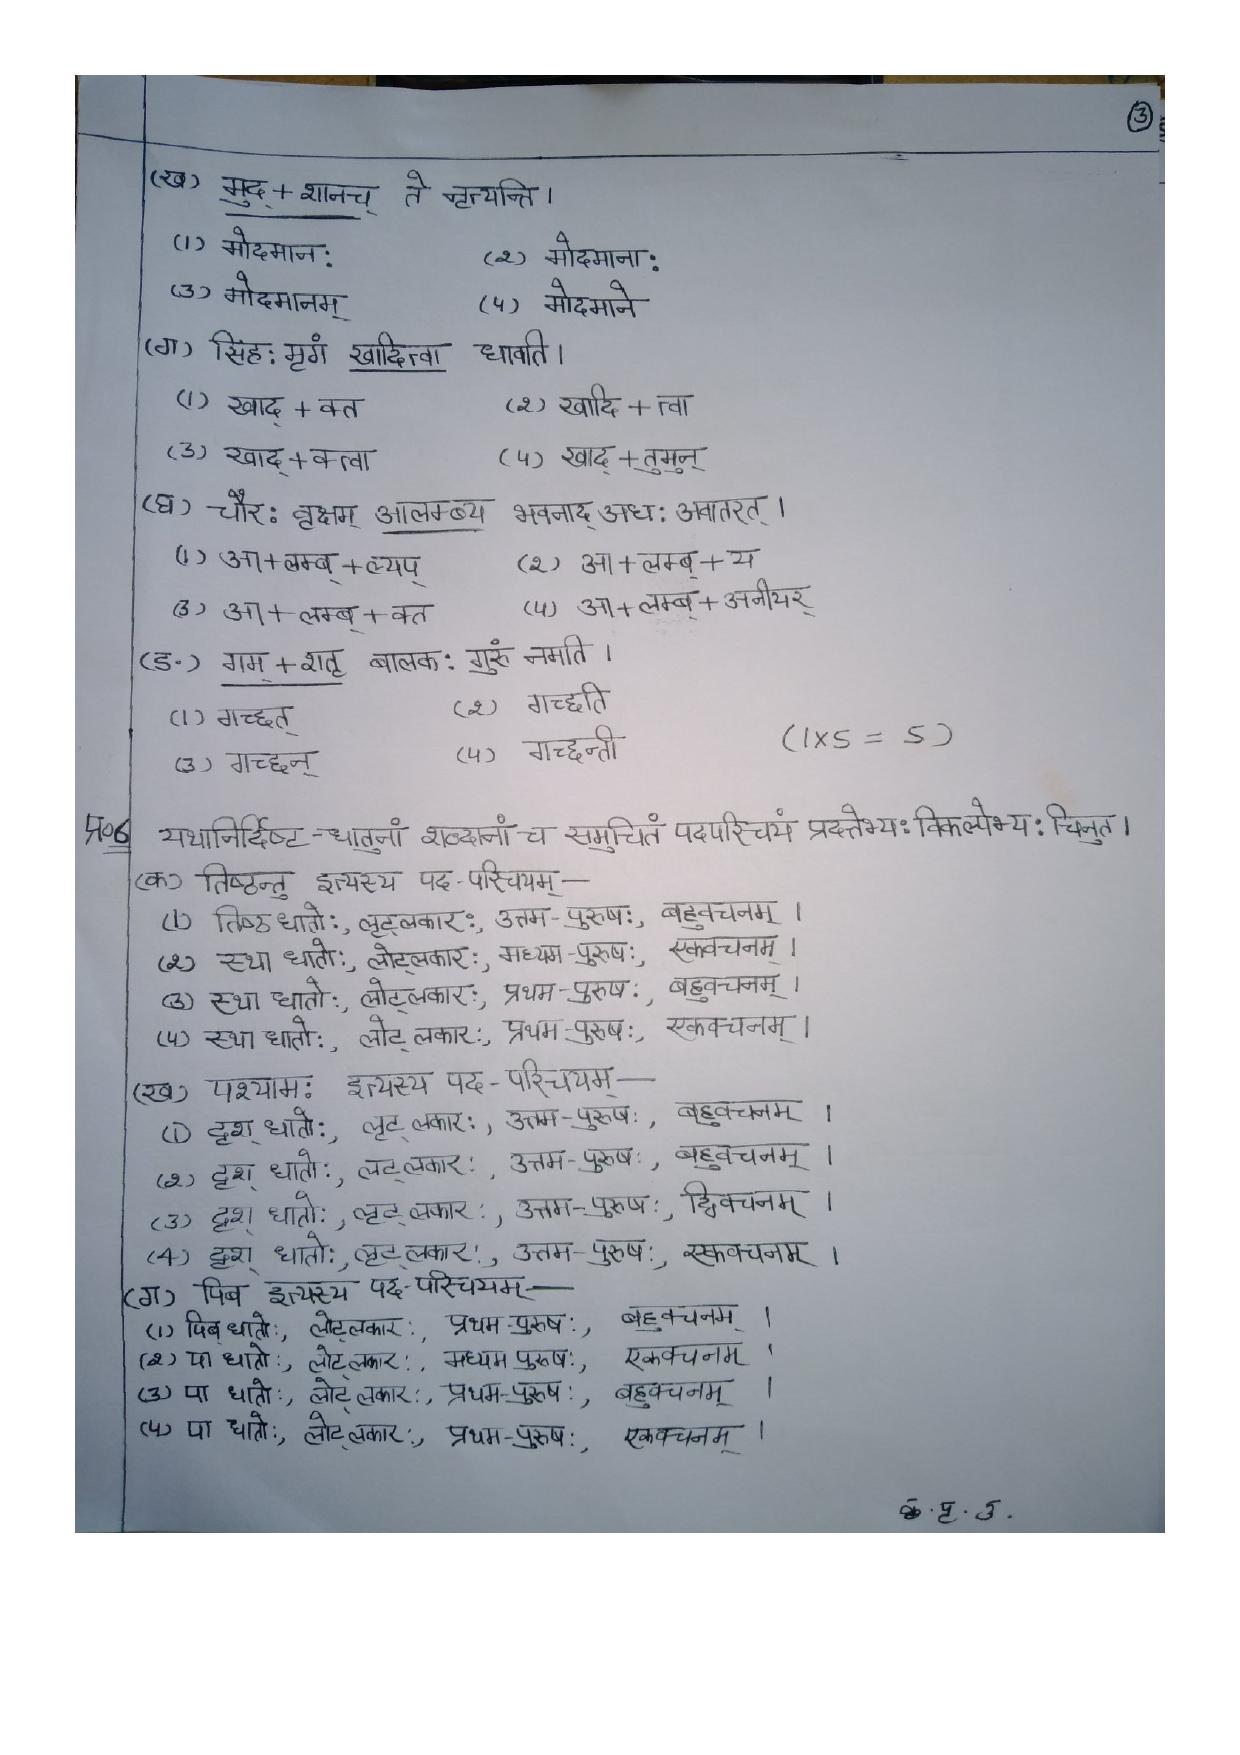 3
(ख) मुद् + शानच् ते नृत्यन्ति ।
(1) मोदमानः (२) मोदमानाः
(3) मोदमानम् (५) मोदमाने
(ग) सिंहः मृगं खादित्वा धावति ।
(1) खाद् + क्त (२) खादि + त्वा
(3) खाद् + क्त्वा (५) खाद् + तुमुन्
(घ) चौरः वृक्षम् आलम्ब्य भवनाद् अधः अवातरत् ।
(1) आ + लम्ब् + ल्यप् (२) आ + लम्ब् + य
(3) आ + लम्ब् + क्त (५) आ + लम्ब् + अनीयर्
(ड.) गम् + शतृ बालकः गुरुं नमति ।
(1) गच्छत् (२) गच्छति
(3) गच्छन् (५) गच्छन्ती (1x5 = 5)
प्र०6 यथानिर्दिष्ट-धातुनां शब्दानां च समुचितं पदपरिचयं प्रदत्तेभ्यः विकल्पेभ्यः चिनुत ।
(क) तिष्ठन्तु इत्यस्य पद-परिचयम् —
(1) तिष्ठ धातोः, लृट्लकारः, उत्तम-पुरुषः, बहुवचनम् ।
(२) स्था धातोः, लोट्लकारः, मध्यम-पुरुषः, एकवचनम् ।
(3) स्था धातोः, लोट्लकारः, प्रथम-पुरुषः, बहुवचनम् ।
(५) स्था धातोः, लोट् लकारः, प्रथम-पुरुषः, एकवचनम् ।
(ख) पश्यामः इत्यस्य पद-परिचयम् —
(1) दृश् धातोः, लृट् लकारः, उत्तम-पुरुषः, बहुवचनम् ।
(२) दृश् धातोः, लट् लकारः, उत्तम-पुरुषः, बहुवचनम् ।
(3) दृश् धातोः, लृट् लकारः, उत्तम-पुरुषः, द्विवचनम् ।
(4) दृश् धातोः, लृट् लकारः, उत्तम-पुरुषः, एकवचनम् ।
(ग) पिब इत्यस्य पद-परिचयम् —
(1) पिब् धातोः, लोट्लकारः, प्रथम-पुरुषः, बहुवचनम् ।
(२) पा धातोः, लोट्लकारः, मध्यम पुरुषः, एकवचनम् ।
(3) पा धातोः, लोट् लकारः, प्रथम-पुरुषः, बहुवचनम् ।
(५) पा धातोः, लोट्लकारः, प्रथम-पुरुषः, एकवचनम् ।
क. पृ. उ.